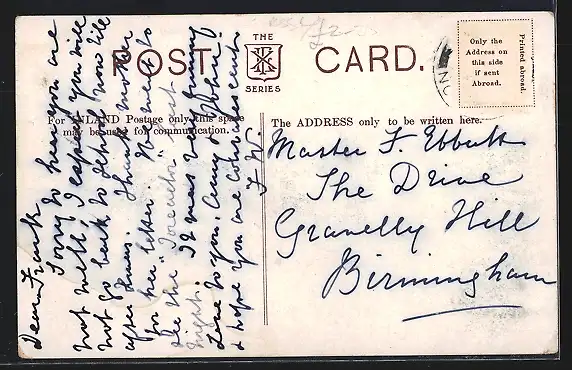 POST THE CARD.
SERIES
Only the
Address on
this side
if sent
Abroad.
Printed abroad.
For INLAND Postage only this space
may be used for communication.
The ADDRESS only to be written here.
Dear Frank
Sorry to hear you are
not well, I expect you will
not go back to school now till
after Xmas. Thank mother
for her letter. We went to
see the
night. It was very funny
Love to you,
& hope you are convalescent
F. W.
Master F. Ebbutt
The Drive
Gravelly Hill
Birmingham